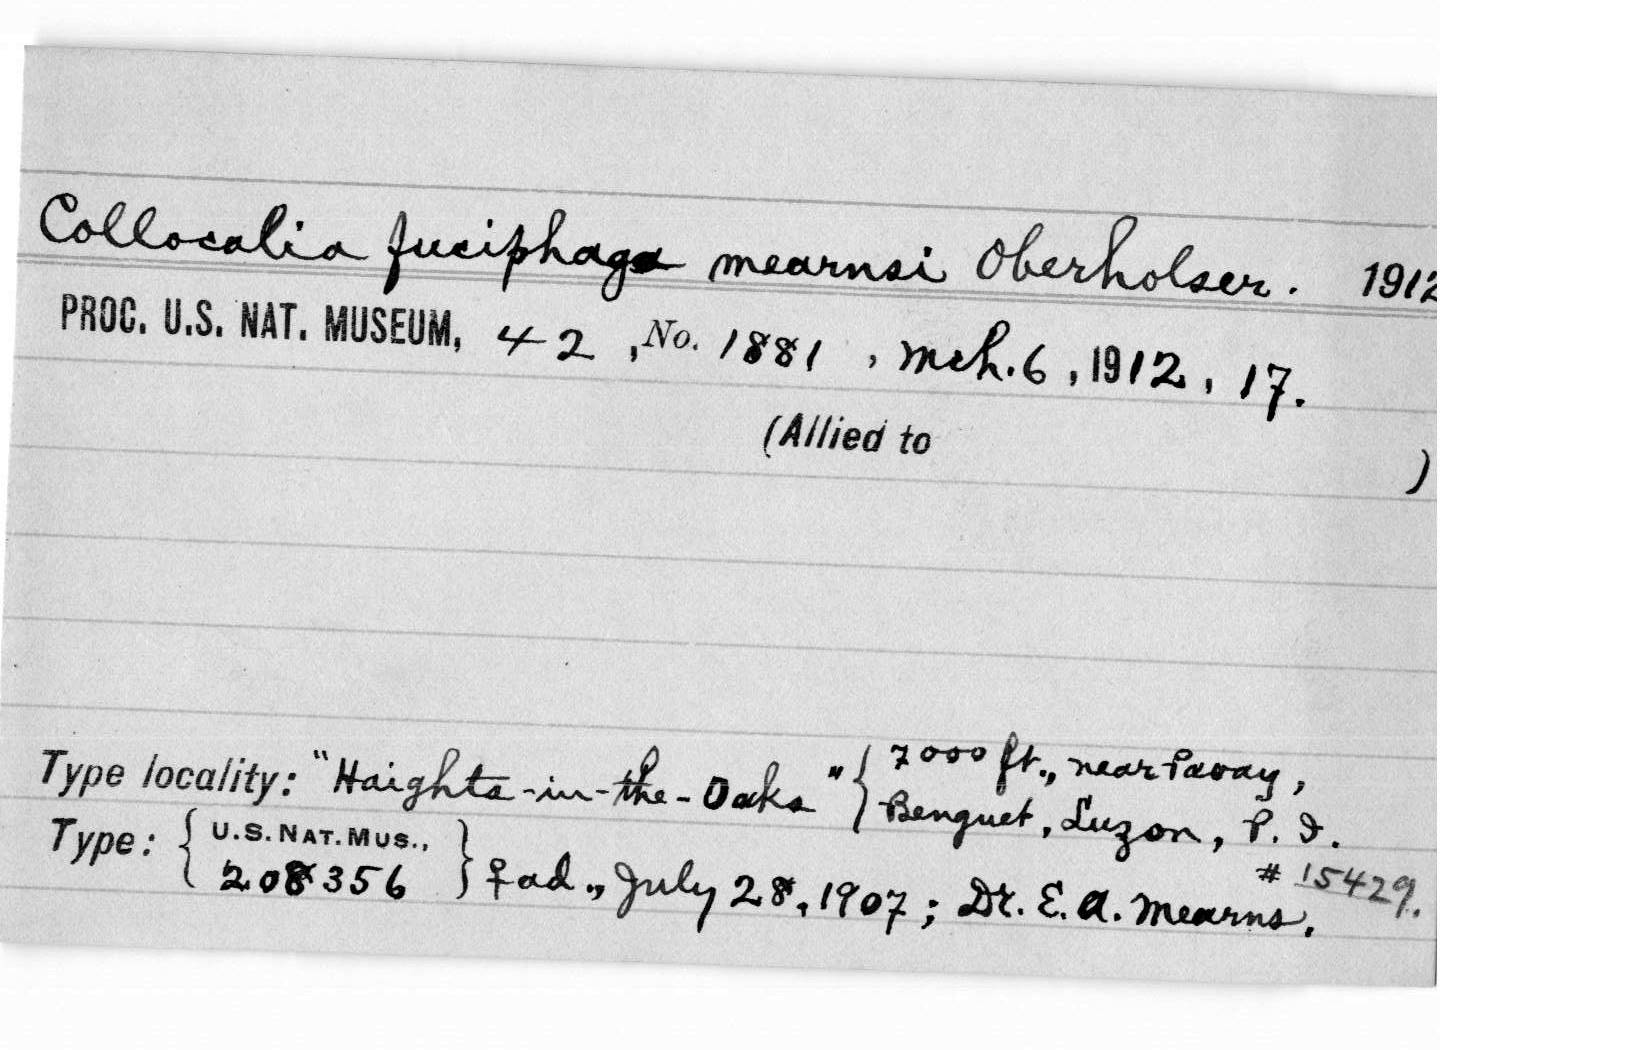 Collocalia fuciphaga mearnsi Oberholser. 1912
PROC. U.S. NAT. MUSEUM, 42, No. 1881, Mch. 6, 1912, 17.
(Allied to )
Type locality: "Haights-in-the-Oaks" { 7000 ft., near Paoay,
Benguet, Luzon, P. I.
Type: { U.S. NAT. MUS., 208356 } ♀ ad., July 28, 1907; Dr. E. A. Mearns.
# 15429.